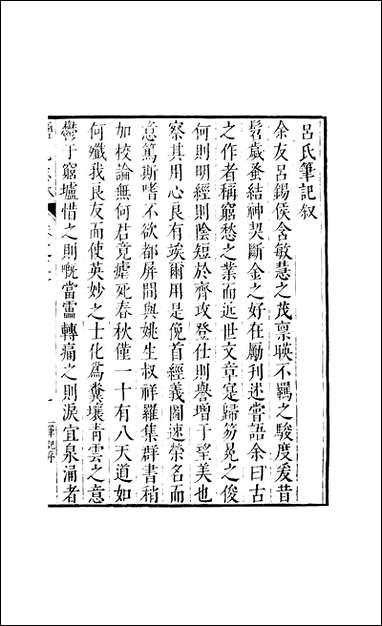 呂氏筆記叙
余友呂錫侯含敏慧之茂禀暎不羈之駿度爰昔
髫歲蚤結神契斷金之好在勵刋迷嘗語余曰古
之作者稱窮愁之業而近世文章寔歸笏冕之俊
何則明經則陰短於齊攻登仕則譽增于望美也
察其用心良有埃爾用是俛首經義圖速榮名而
意篤斯嗜不欲都屏間與姚生叔祥羅集群書稍
加校論無何君竟瘧死春秋僅一十有八天道如
何殲我良友而使英妙之士化爲糞壤青雲之意
鬱于窮壚惜之則嘅當靁轉痛之則淚宜泉涌者